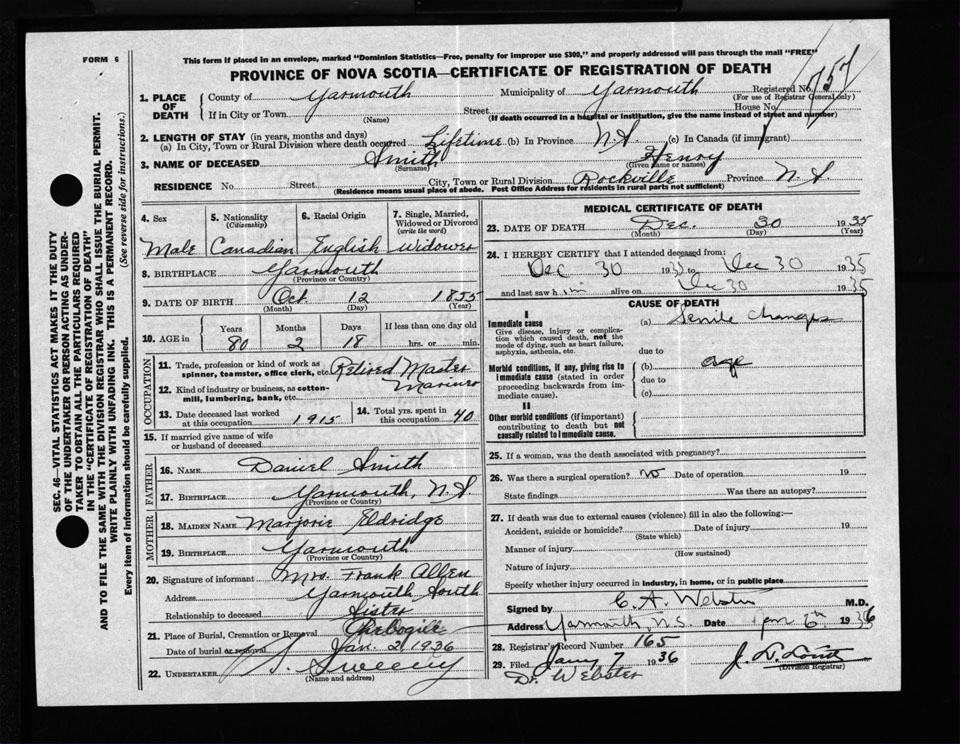 FORM 6
This form if placed in an envelope, marked "Dominion Statistics—Free, penalty for improper use $300," and properly addressed will pass through the mail "FREE"
PROVINCE OF NOVA SCOTIA—CERTIFICATE OF REGISTRATION OF DEATH
1. PLACE OF DEATH
County of Yarmouth Municipality of Yarmouth Registered No. 757
(For use of Registrar General only)
If in City or Town (Name) Street House No.
(If death occurred in a hospital or institution, give the name instead of street and number)
2. LENGTH OF STAY (in years, months and days)
(a) In City, Town or Rural Division where death occurred Lifetime (b) In Province N.S. (c) In Canada (if immigrant)
3. NAME OF DECEASED Smith Henry
(Surname) (Given name or names)
RESIDENCE No. Street City, Town or Rural Division Rockville Province N.S.
(Residence means usual place of abode. Post Office Address for residents in rural parts not sufficient)
4. Sex 5. Nationality (Citizenship) 6. Racial Origin 7. Single, Married, Widowed or Divorced (write the word)
Male Canadian English Widower
8. BIRTHPLACE Yarmouth
(Province or Country)
9. DATE OF BIRTH Oct. 12 1855
(Month) (Day) (Year)
10. AGE in Years Months Days If less than one day old
80 2 18 hrs. or min.
OCCUPATION
11. Trade, profession or kind of work as spinner, teamster, office clerk, etc. Retired Master
Mariner
12. Kind of industry or business, as cotton-mill, lumbering, bank, etc.
13. Date deceased last worked at this occupation 1915 14. Total yrs. spent in this occupation 40
15. If married give name of wife or husband of deceased
FATHER
16. NAME Daniel Smith
17. BIRTHPLACE Yarmouth, N.S.
(Province or Country)
MOTHER
18. MAIDEN NAME Marjorie Eldridge
19. BIRTHPLACE Yarmouth
(Province or Country)
20. Signature of informant Mrs. Frank Allen
Address Yarmouth South
Relationship to deceased Sister
21. Place of Burial, Cremation or Removal Chebogue
Date of burial or removal Jan. 2, 1936
22. UNDERTAKER Sweeny
(Name and address)
MEDICAL CERTIFICATE OF DEATH
23. DATE OF DEATH Dec. 30 1935
(Month) (Day) (Year)
24. I HEREBY CERTIFY that I attended deceased from:
Dec 30 1935 to Dec 30 1935
and last saw him alive on Dec 30 1935
CAUSE OF DEATH
I
Immediate cause (a) Senile changes
Give disease, injury or complication which caused death, not the mode of dying, such as heart failure, asphyxia, asthenia, etc.
due to
Morbid conditions, if any, giving rise to immediate cause (stated in order proceeding backwards from immediate cause).
(b) age
due to
(c)
II
Other morbid conditions (if important) contributing to death but not causally related to immediate cause.
25. If a woman, was the death associated with pregnancy?
26. Was there a surgical operation? no Date of operation 19
State findings Was there an autopsy?
27. If death was due to external causes (violence) fill in also the following:—
Accident, suicide or homicide? Date of injury 19
(State which)
Manner of injury
(How sustained)
Nature of injury
Specify whether injury occurred in industry, in home, or in public place
Signed by C. A. Webster M.D.
Address Yarmouth N.S. Date Jan 6th 1936
28. Registrar's Record Number 165
29. Filed Jany 7 1936
(Division Registrar)
Dr. Webster
SEC. 46—VITAL STATISTICS ACT MAKES IT THE DUTY
OF THE UNDERTAKER OR PERSON ACTING AS UNDER-
TAKER TO OBTAIN ALL THE PARTICULARS REQUIRED
IN THE "CERTIFICATE OF REGISTRATION OF DEATH"
AND TO FILE THE SAME WITH THE DIVISION REGISTRAR WHO SHALL ISSUE THE BURIAL PERMIT.
WRITE PLAINLY WITH UNFADING INK. THIS IS A PERMANENT RECORD.
Every item of information should be carefully supplied. (See reverse side for instructions.)